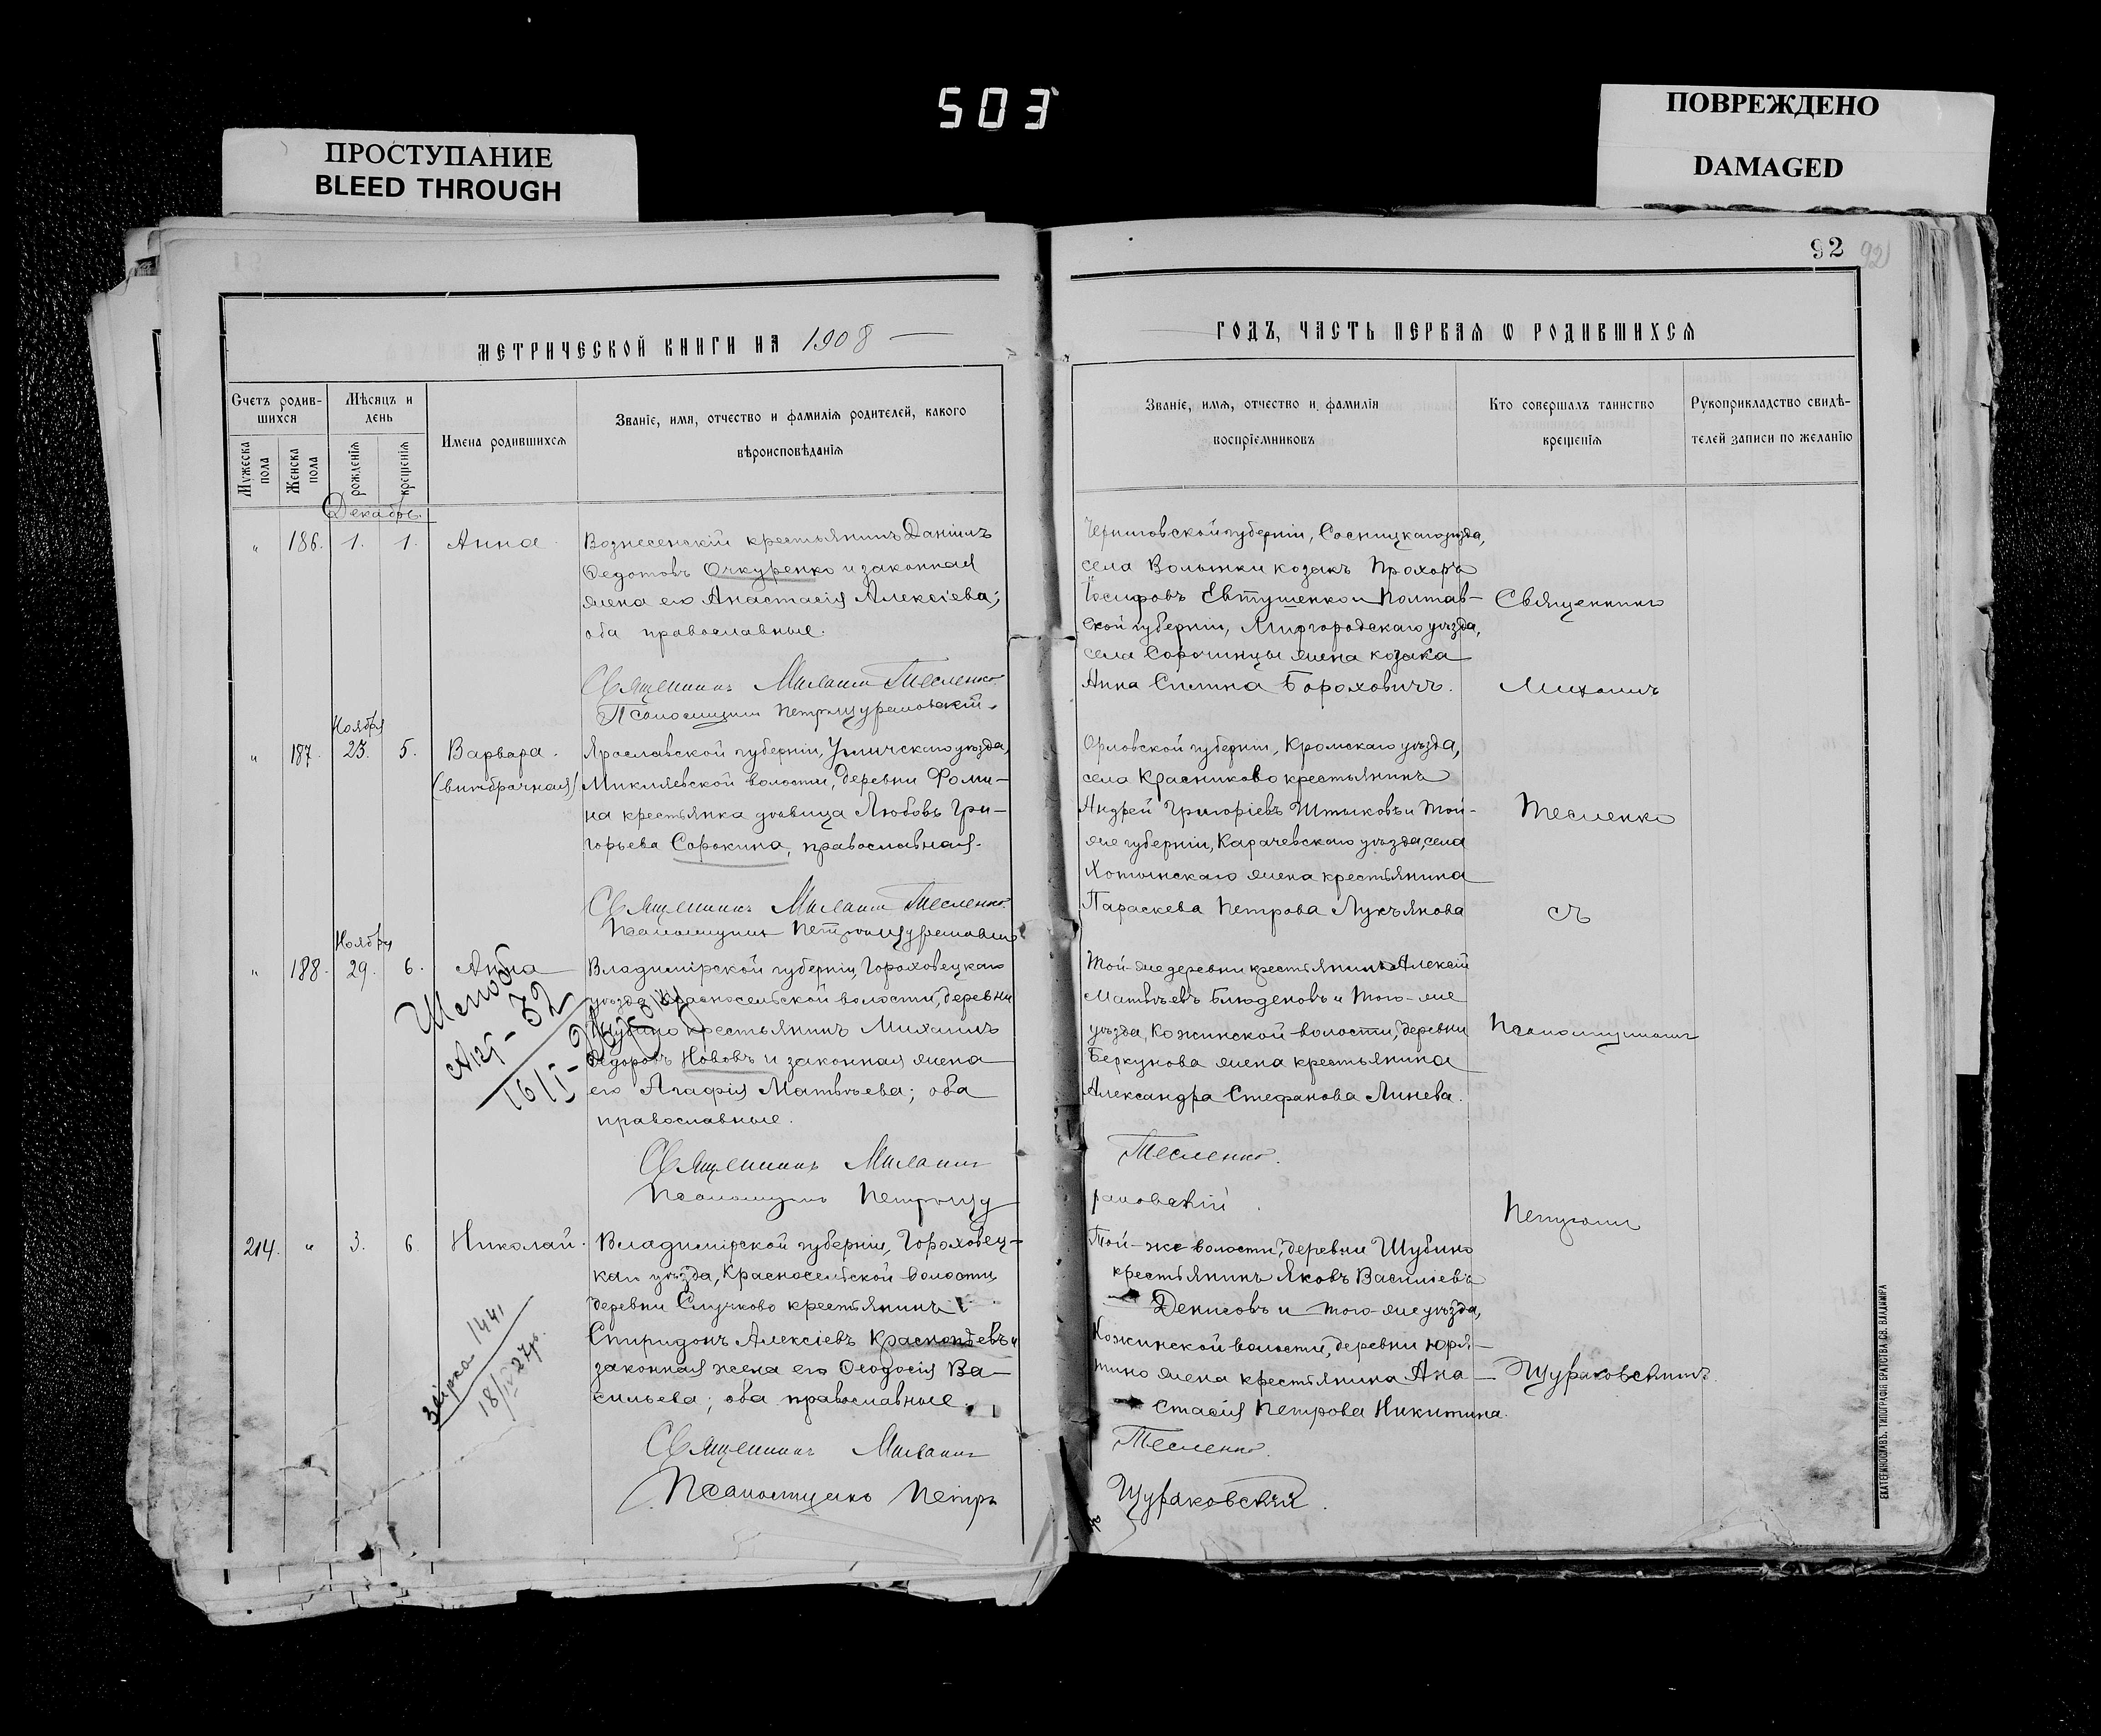 503
ПРОСТУПАНИЕ
BLEED THROUGH
ПОВРЕЖДЕНО
DAMAGED
92
92
МЕТРИЧЕСКОЙ КНИГИ НА 1908
Счетъ родив-
шихся
Мужеска
пола
Женска
пола
Мѣсяцъ и
день
рожденія
крещенія
Имена родившихся
Званіе, имя, отчество и фамилія родителей, какого
вѣроисповѣданія
Декабрь.
" 186. 1. 1. Анна
Вознесенскій крестьянинъ Даніилъ
Федотовъ Очкуренко и законная
жена его Анастасія Алексіева;
оба православные.
Священникъ Михаилъ Тесленко.
Псаломщикъ Петръ Щураковскій.
Ноября
" 187. 23. 5. Варвара.
(внѣбрачная)
Ярославской губерніи, Угличскаго уѣзда,
волости, деревни Фоми-
на крестьянка дѣвица Любовь Гри-
горьева Сорокина, православная.
Священникъ Михаилъ Тесленко.
Псаломщикъ Петръ Щураковскій
Ноября
" 188. 29. 6. Анна
Владимірской губерніи, Гороховецкаго
уѣзда Красносельской волости, деревни
крестьянинъ Михаилъ
Ѳедоровъ Нововъ и законная жена
его Агафія Матвѣева; оба
православные.
Священникъ Михаилъ
Псаломщикъ Петръ Щу
214. " 3. 6 Николай.
Владимірской губерніи, Гороховец-
каго уѣзда, Красносельской волости,
деревни Случково крестьянинъ
Спиридонъ Алексіевъ и
законная жена его Ѳеодосія Ва-
сильева; оба православные.
Священникъ Михаилъ
Псаломщикъ Петръ
1441
18/II 27р.
ГОДЪ, ЧАСТЬ ПЕРВАЯ Ѡ РОДИВШИХСЯ
Званіе, имя, отчество и фамилія
воспріемниковъ
Кто совершалъ таинство
крещенія
Рукоприкладство свидѣ-
телей записи по желанію
Черниговской губерніи, Сосницкаго уѣзда,
села Волынки козакъ Прохоръ
Іосифовъ Евтушенко и Полтав-
ской губерніи, Миргородскаго уѣзда,
села Сорочинцы жена козака
Анна Силина Бороховичъ.
Орловской губерніи, Кромскаго уѣзда,
села Красниково крестьянинъ
Андрей Григоріевъ Штыковъ и той-
же губерніи, Карачевскаго уѣзда, села
Хотынскаго жена крестьянина
Параскева Петрова Лукъянова
Той-же деревни крестьянинъ Алексій
Матвѣевъ Блюденовъ и того-же
уѣзда, Кожинской волости, деревни
Беркунова жена крестьянина
Александра Стефанова Линева.
Тесленко.
раковскій
Той-же волости, деревни Шубино
крестьянинъ Яковъ Василіевъ
Денисовъ и того-же уѣзда,
Кожинской волости, деревни Юря-
тино жена крестьянина Ана-
стасія Петрова Никитина.
Тесленко.
Щураковскій.
Священникъ
Михаилъ
Тесленко
съ
Псаломщикомъ
Петромъ
Щураковскимъ.
ЕКАТЕРИНОСЛАВЪ. ТИПОГРАФІЯ БРАТСТВА СВ. ВЛАДИМІРА